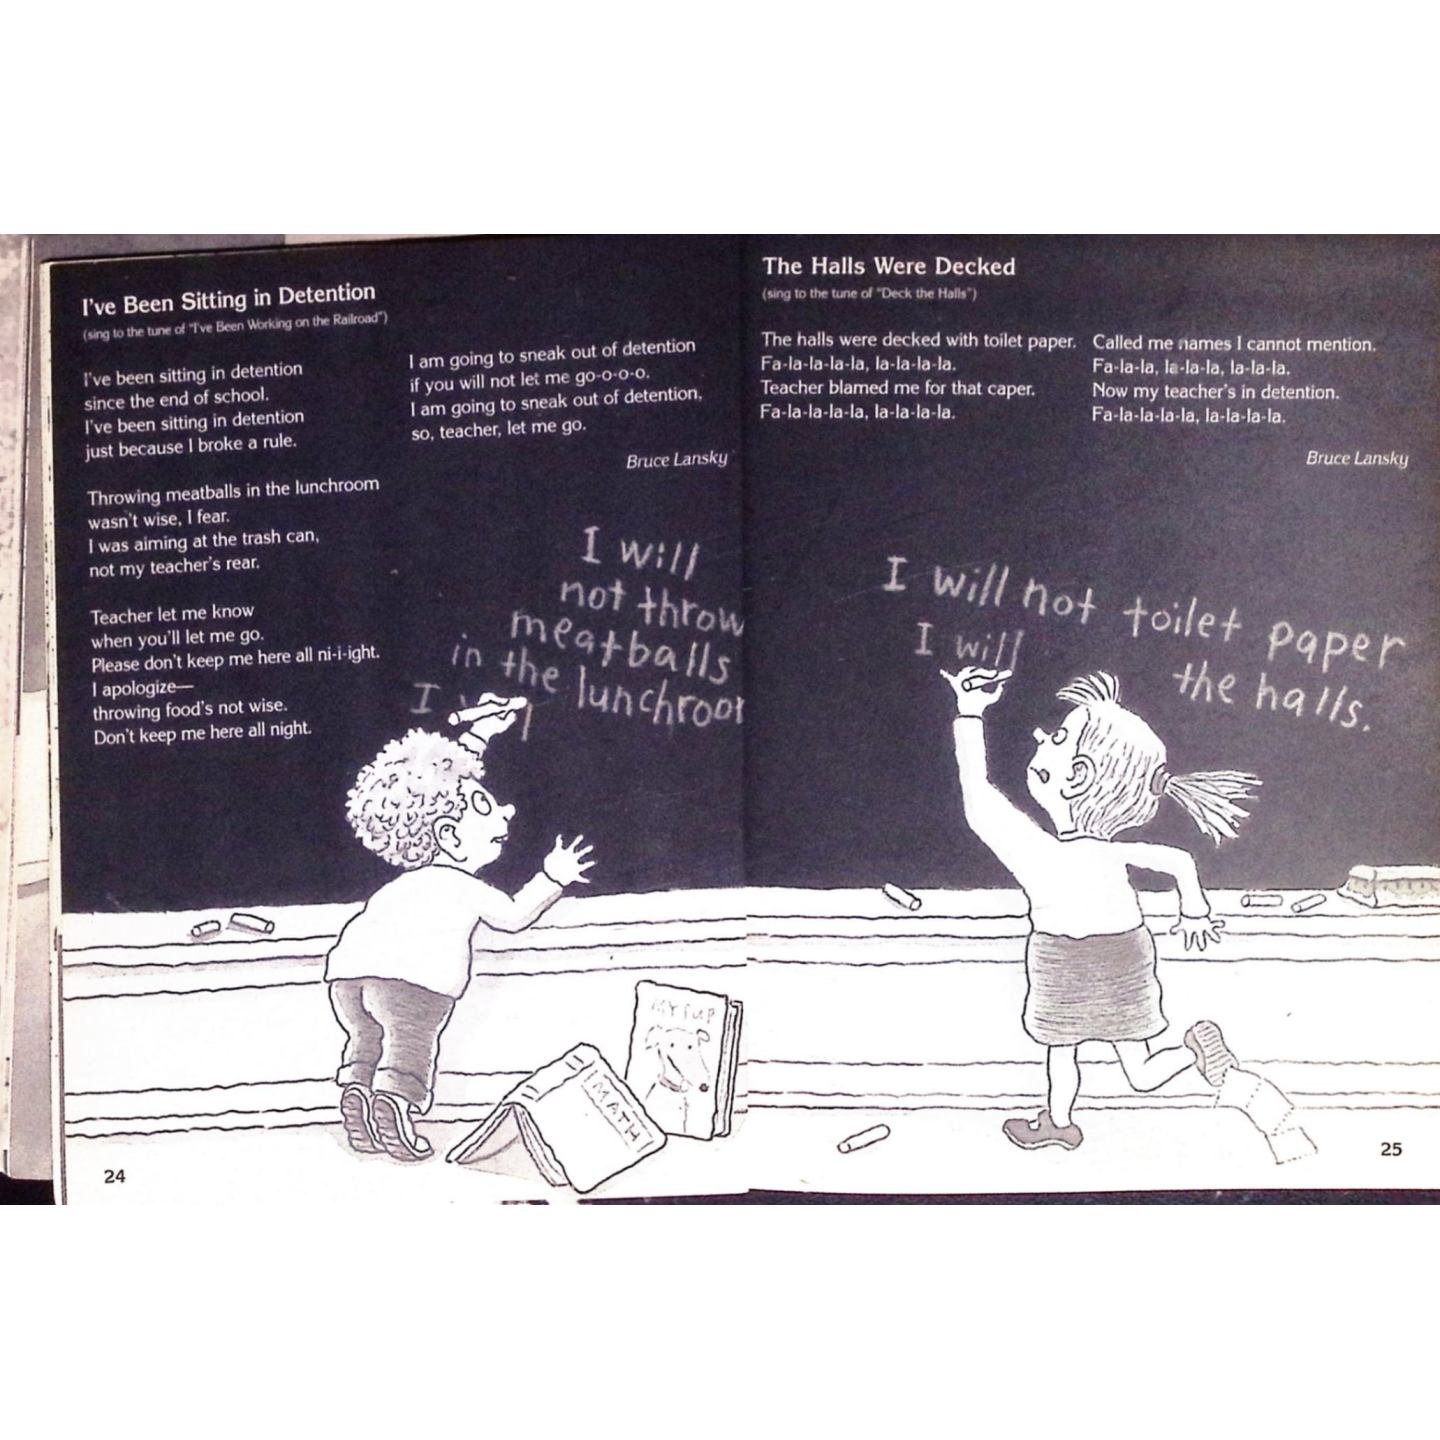 I've Been Sitting in Detention
(sing to the tune of "I've Been Working on the Railroad")
I've been sitting in detention
since the end of school.
I've been sitting in detention
just because I broke a rule.
Throwing meatballs in the lunchroom
wasn't wise, I fear.
I was aiming at the trash can,
not my teacher's rear.
Teacher let me know
when you'll let me go.
Please don't keep me here all ni-i-ight.
I apologize—
throwing food's not wise.
Don't keep me here all night.
I am going to sneak out of detention
if you will not let me go-o-o-o.
I am going to sneak out of detention,
so, teacher, let me go.
Bruce Lansky
I will
not throw
meatballs
in the lunchroom
I
MY PUP
MATH
24
The Halls Were Decked
(sing to the tune of "Deck the Halls")
The halls were decked with toilet paper.
Fa-la-la-la-la, la-la-la-la.
Teacher blamed me for that caper.
Fa-la-la-la-la, la-la-la-la.
Called me names I cannot mention.
Fa-la-la, la-la-la, la-la-la.
Now my teacher's in detention.
Fa-la-la-la-la, la-la-la-la.
Bruce Lansky
I will not toilet paper
the halls.
I will
25